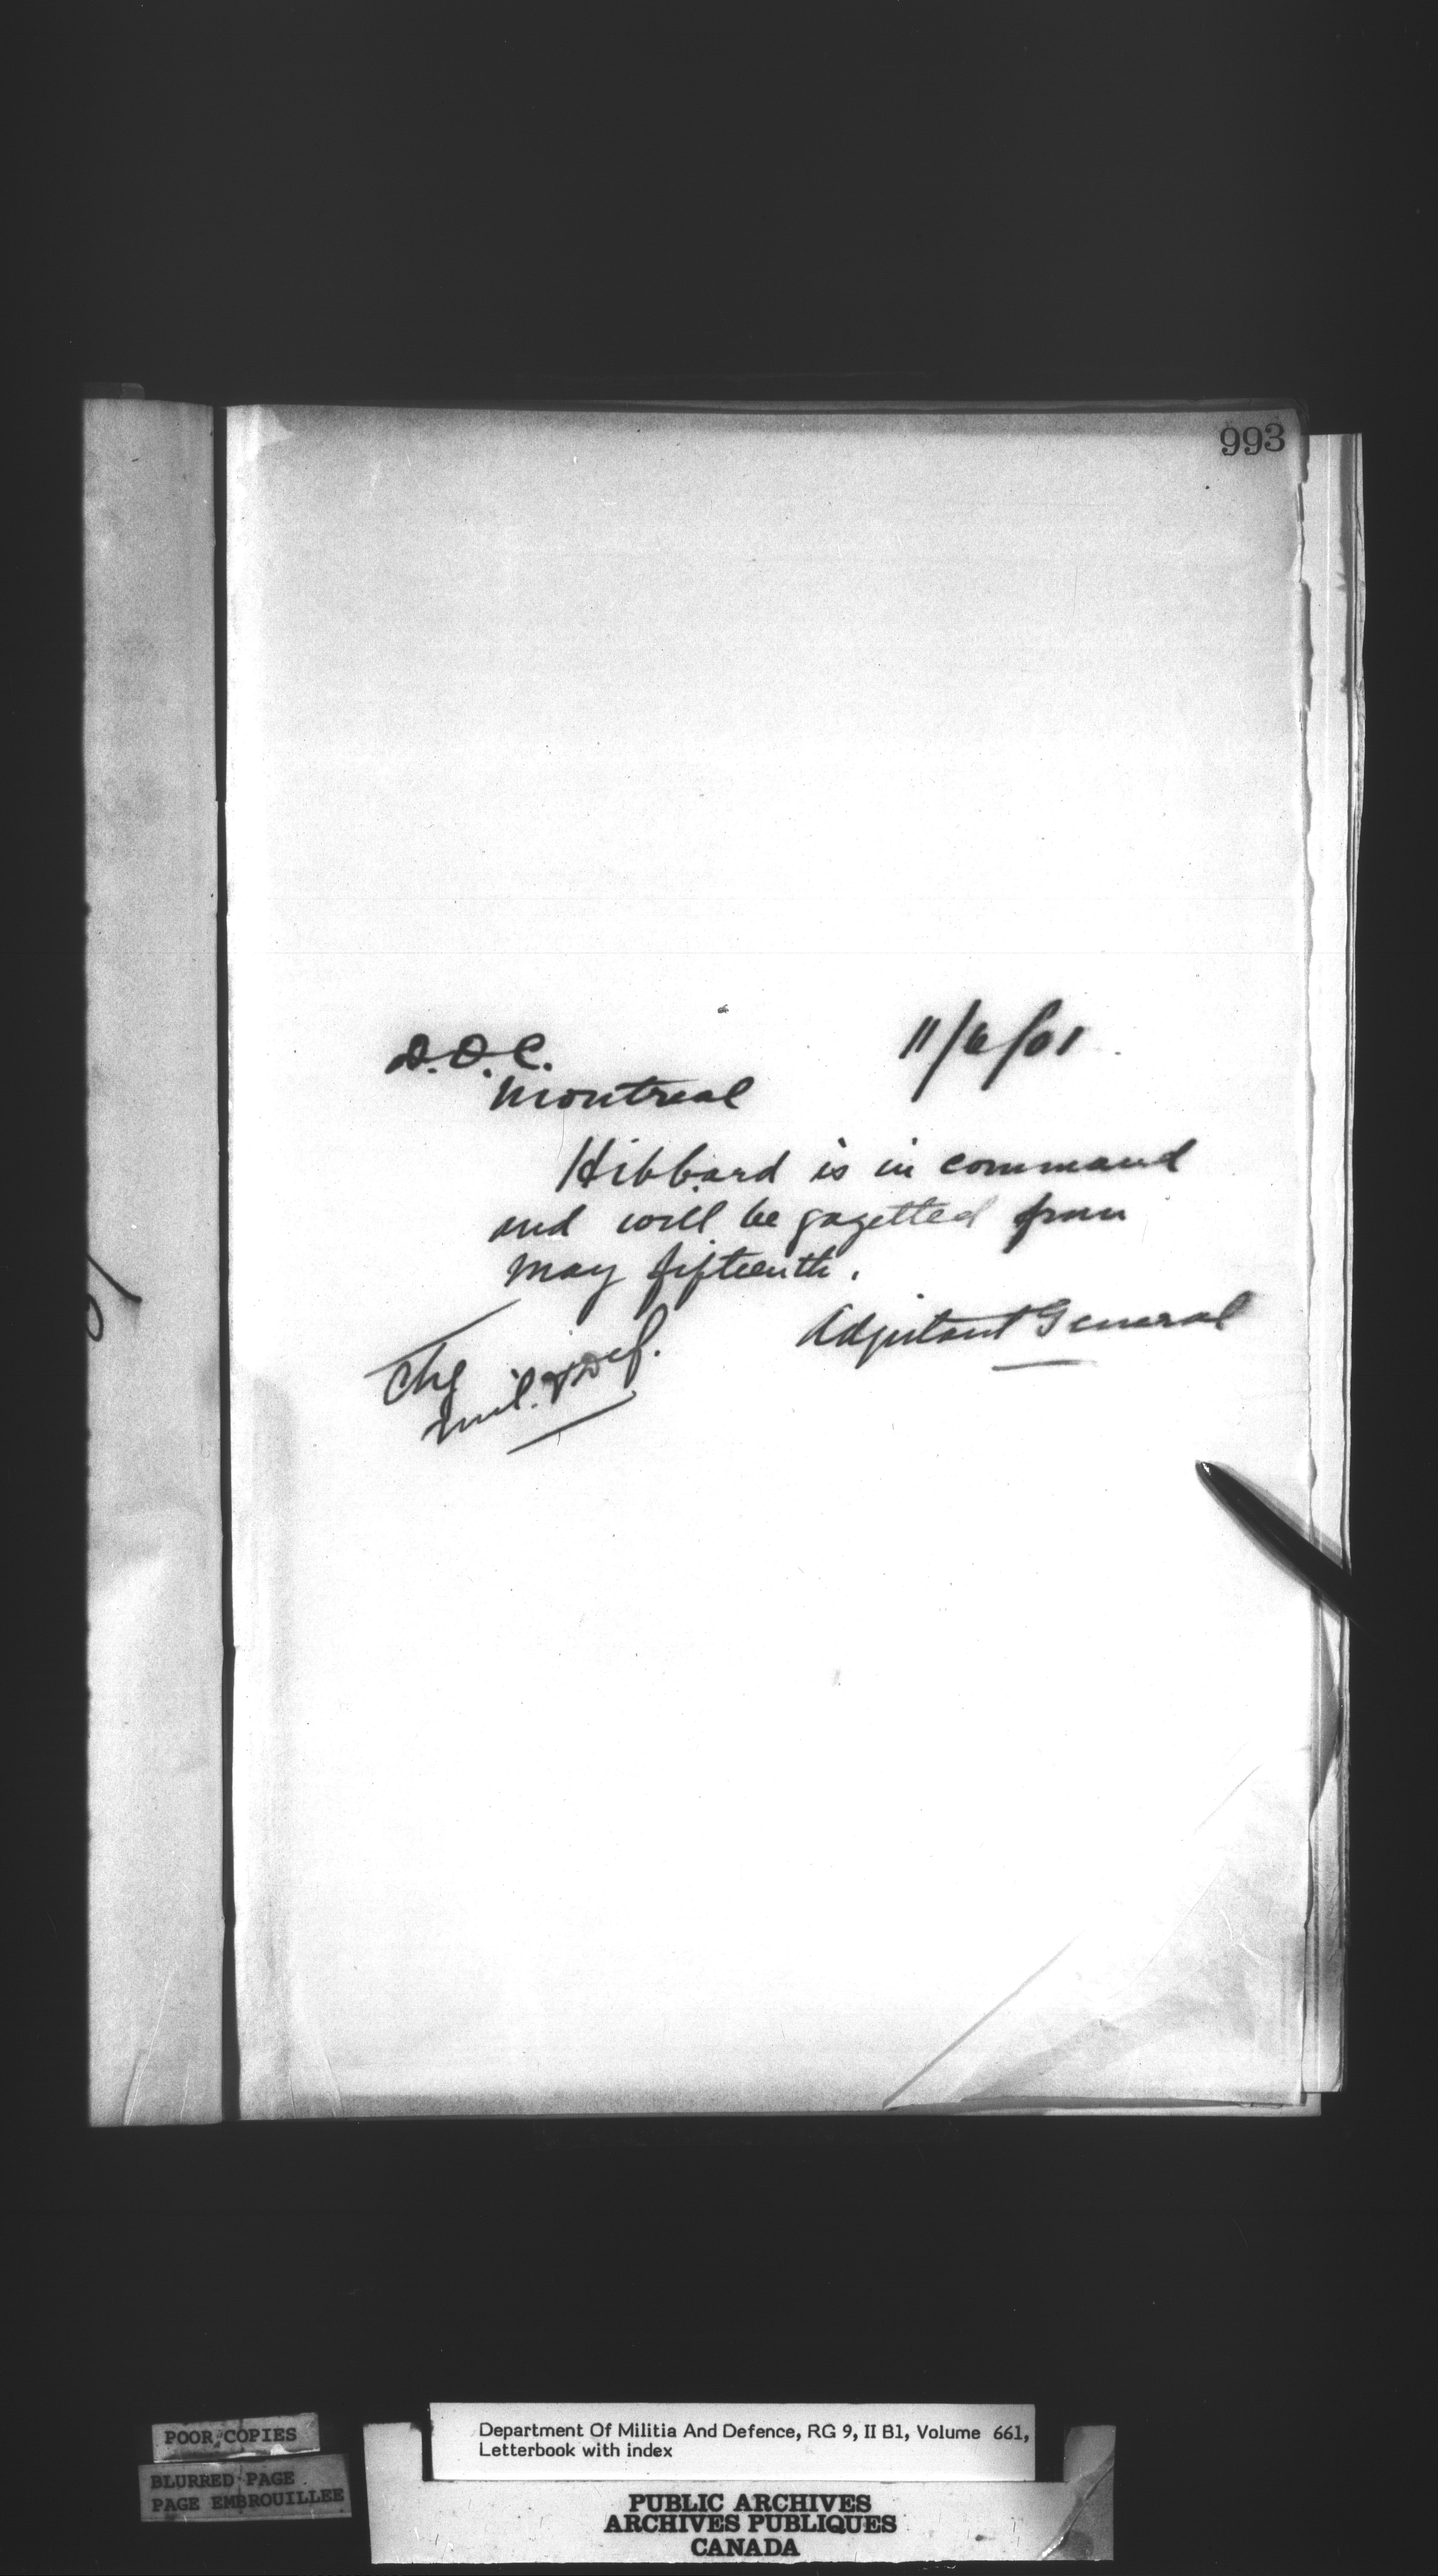 993
D.O.C. 11/6/01
Montreal
Hibbard is in command
and will be gazetted from
May fifteenth.
Adjutant General
Chg
Mil. & Def.
POOR COPIES
BLURRED PAGE
PAGE EMBROUILLEE
Department Of Militia And Defence, RG 9, II B1, Volume 661,
Letterbook with index
PUBLIC ARCHIVES
ARCHIVES PUBLIQUES
CANADA